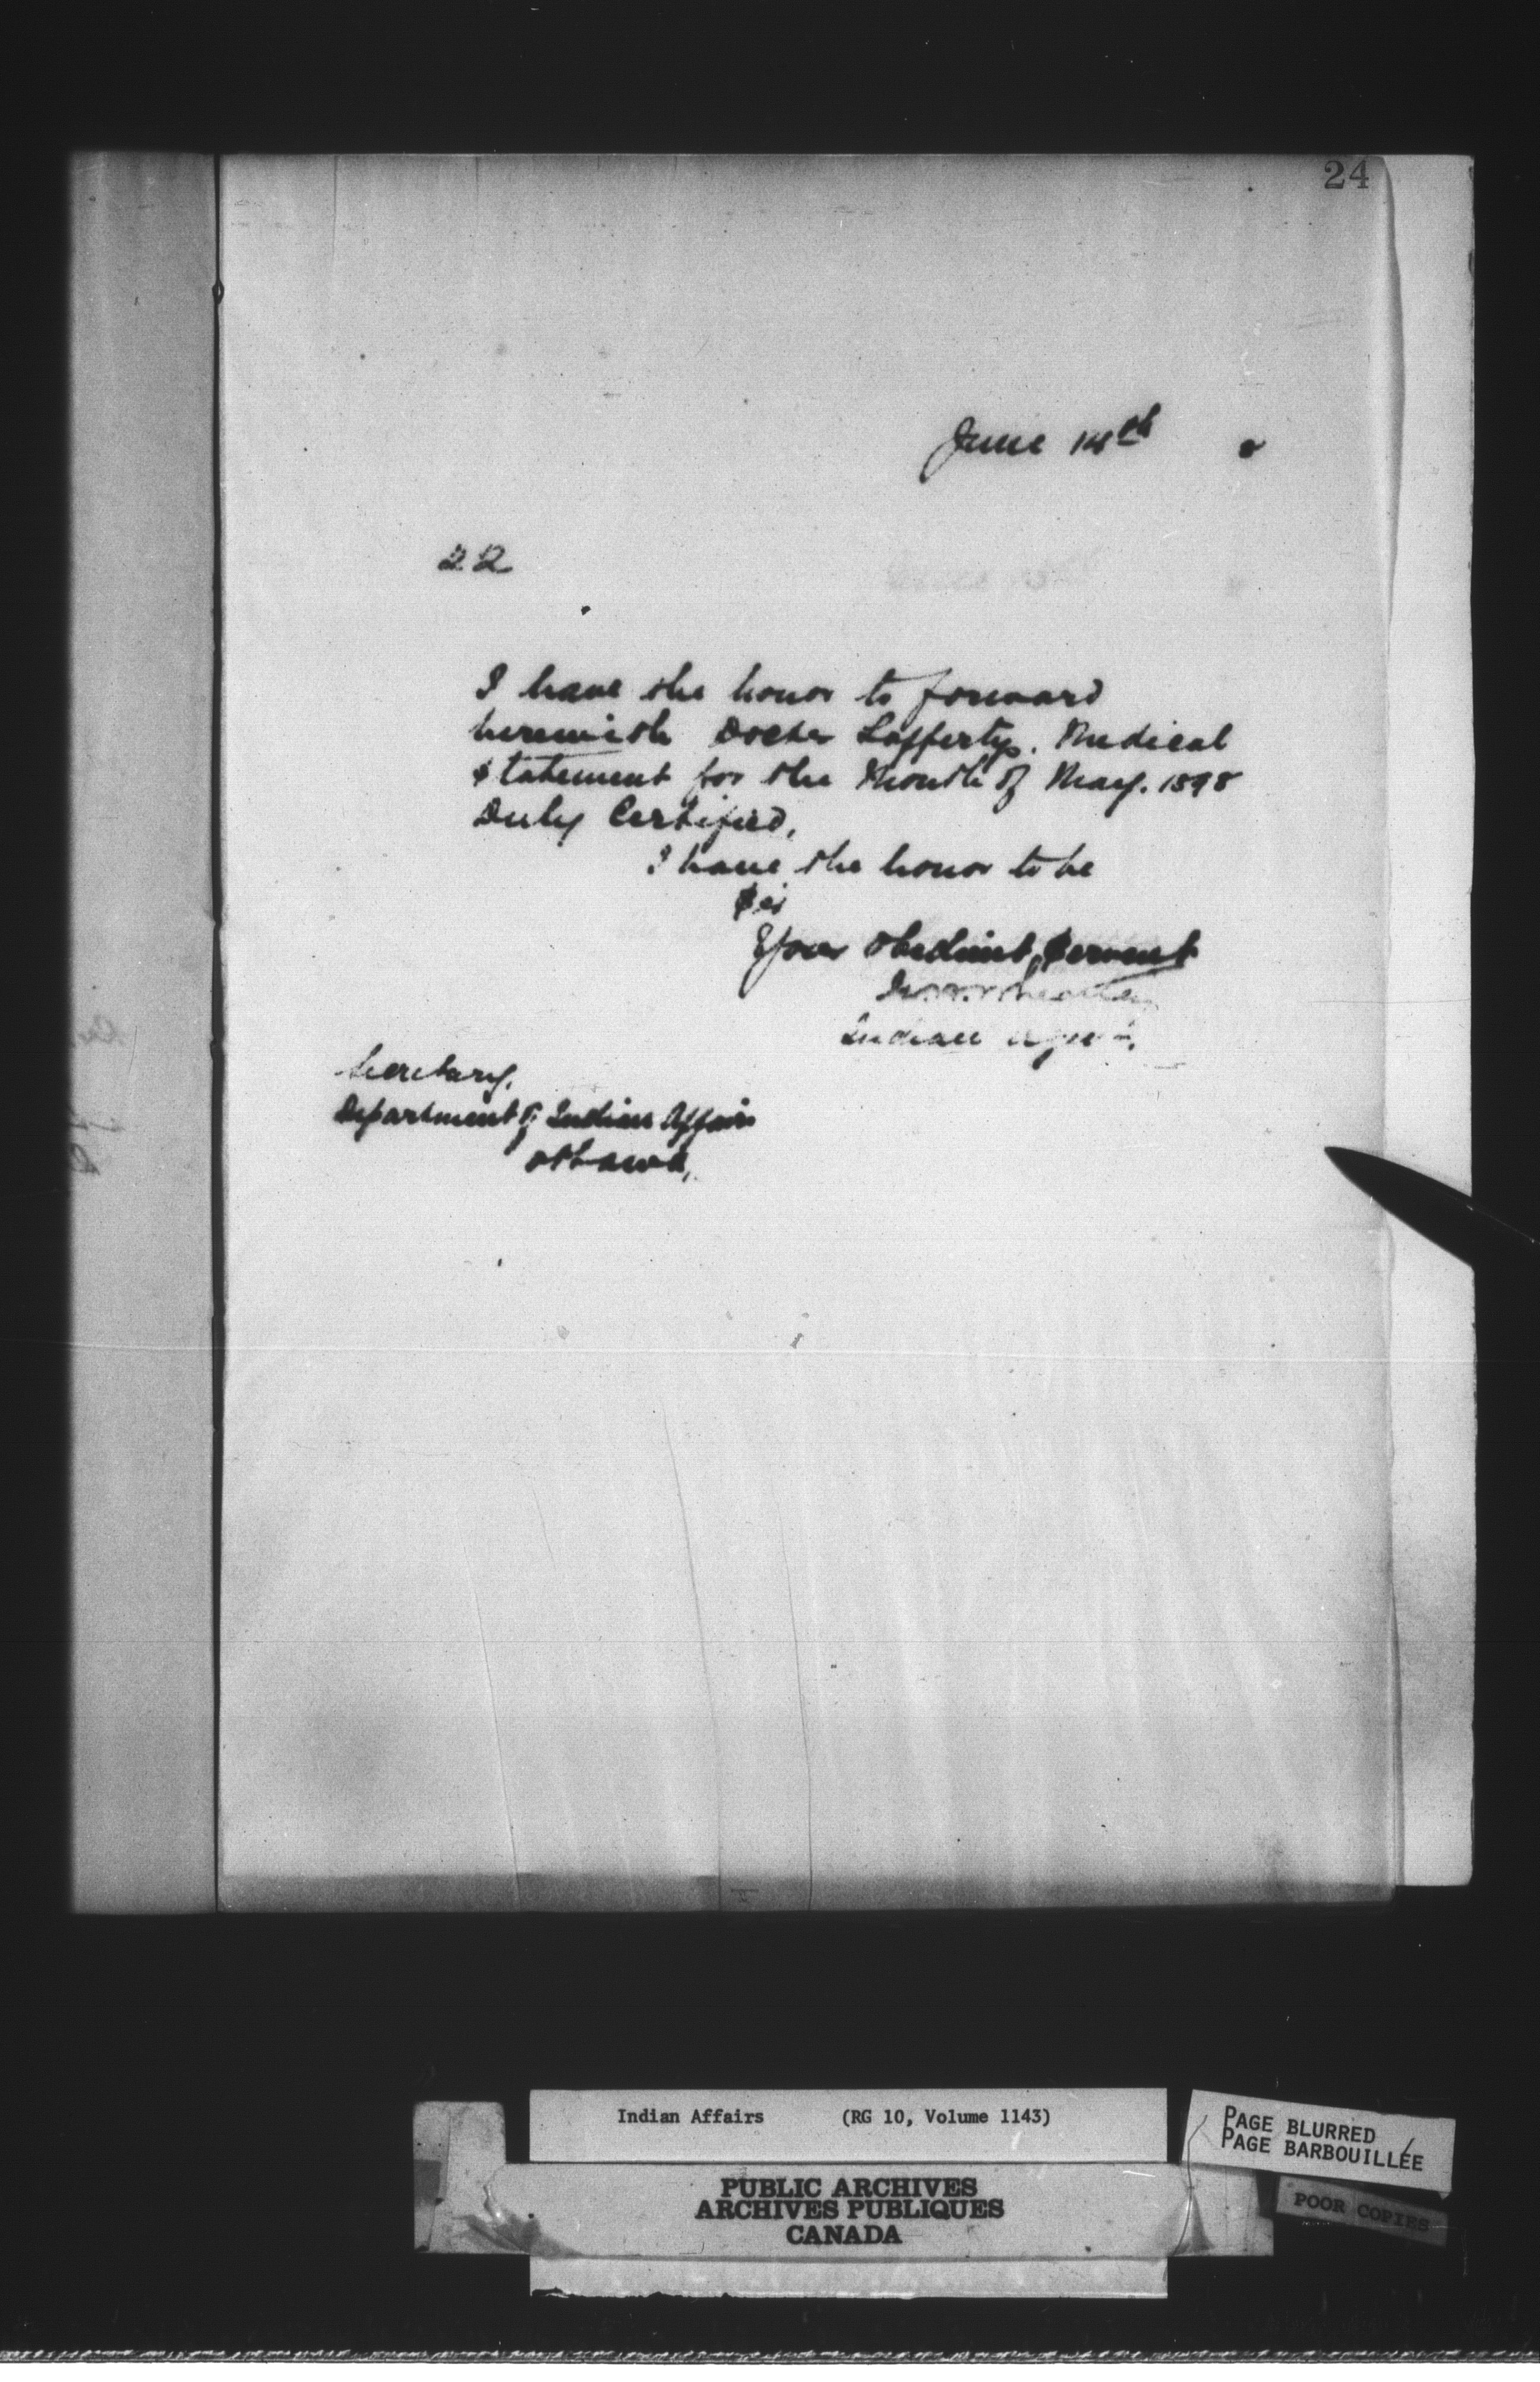 24
June 14th 8
22
I have the honor to forward
herewith Doctor Laffertys. Medical
statement for the Month of May. 1898
Duly Certified,
I have the honor to be
Sir
Your obedient, Servent
Indian Agent.
Secretary.
Department of Indian Affairs
Ottawa,
Indian Affairs (RG 10, Volume 1143)
PUBLIC ARCHIVES
ARCHIVES PUBLIQUES
CANADA
PAGE BLURRED
PAGE BARBOUILLÉE
POOR COPIES